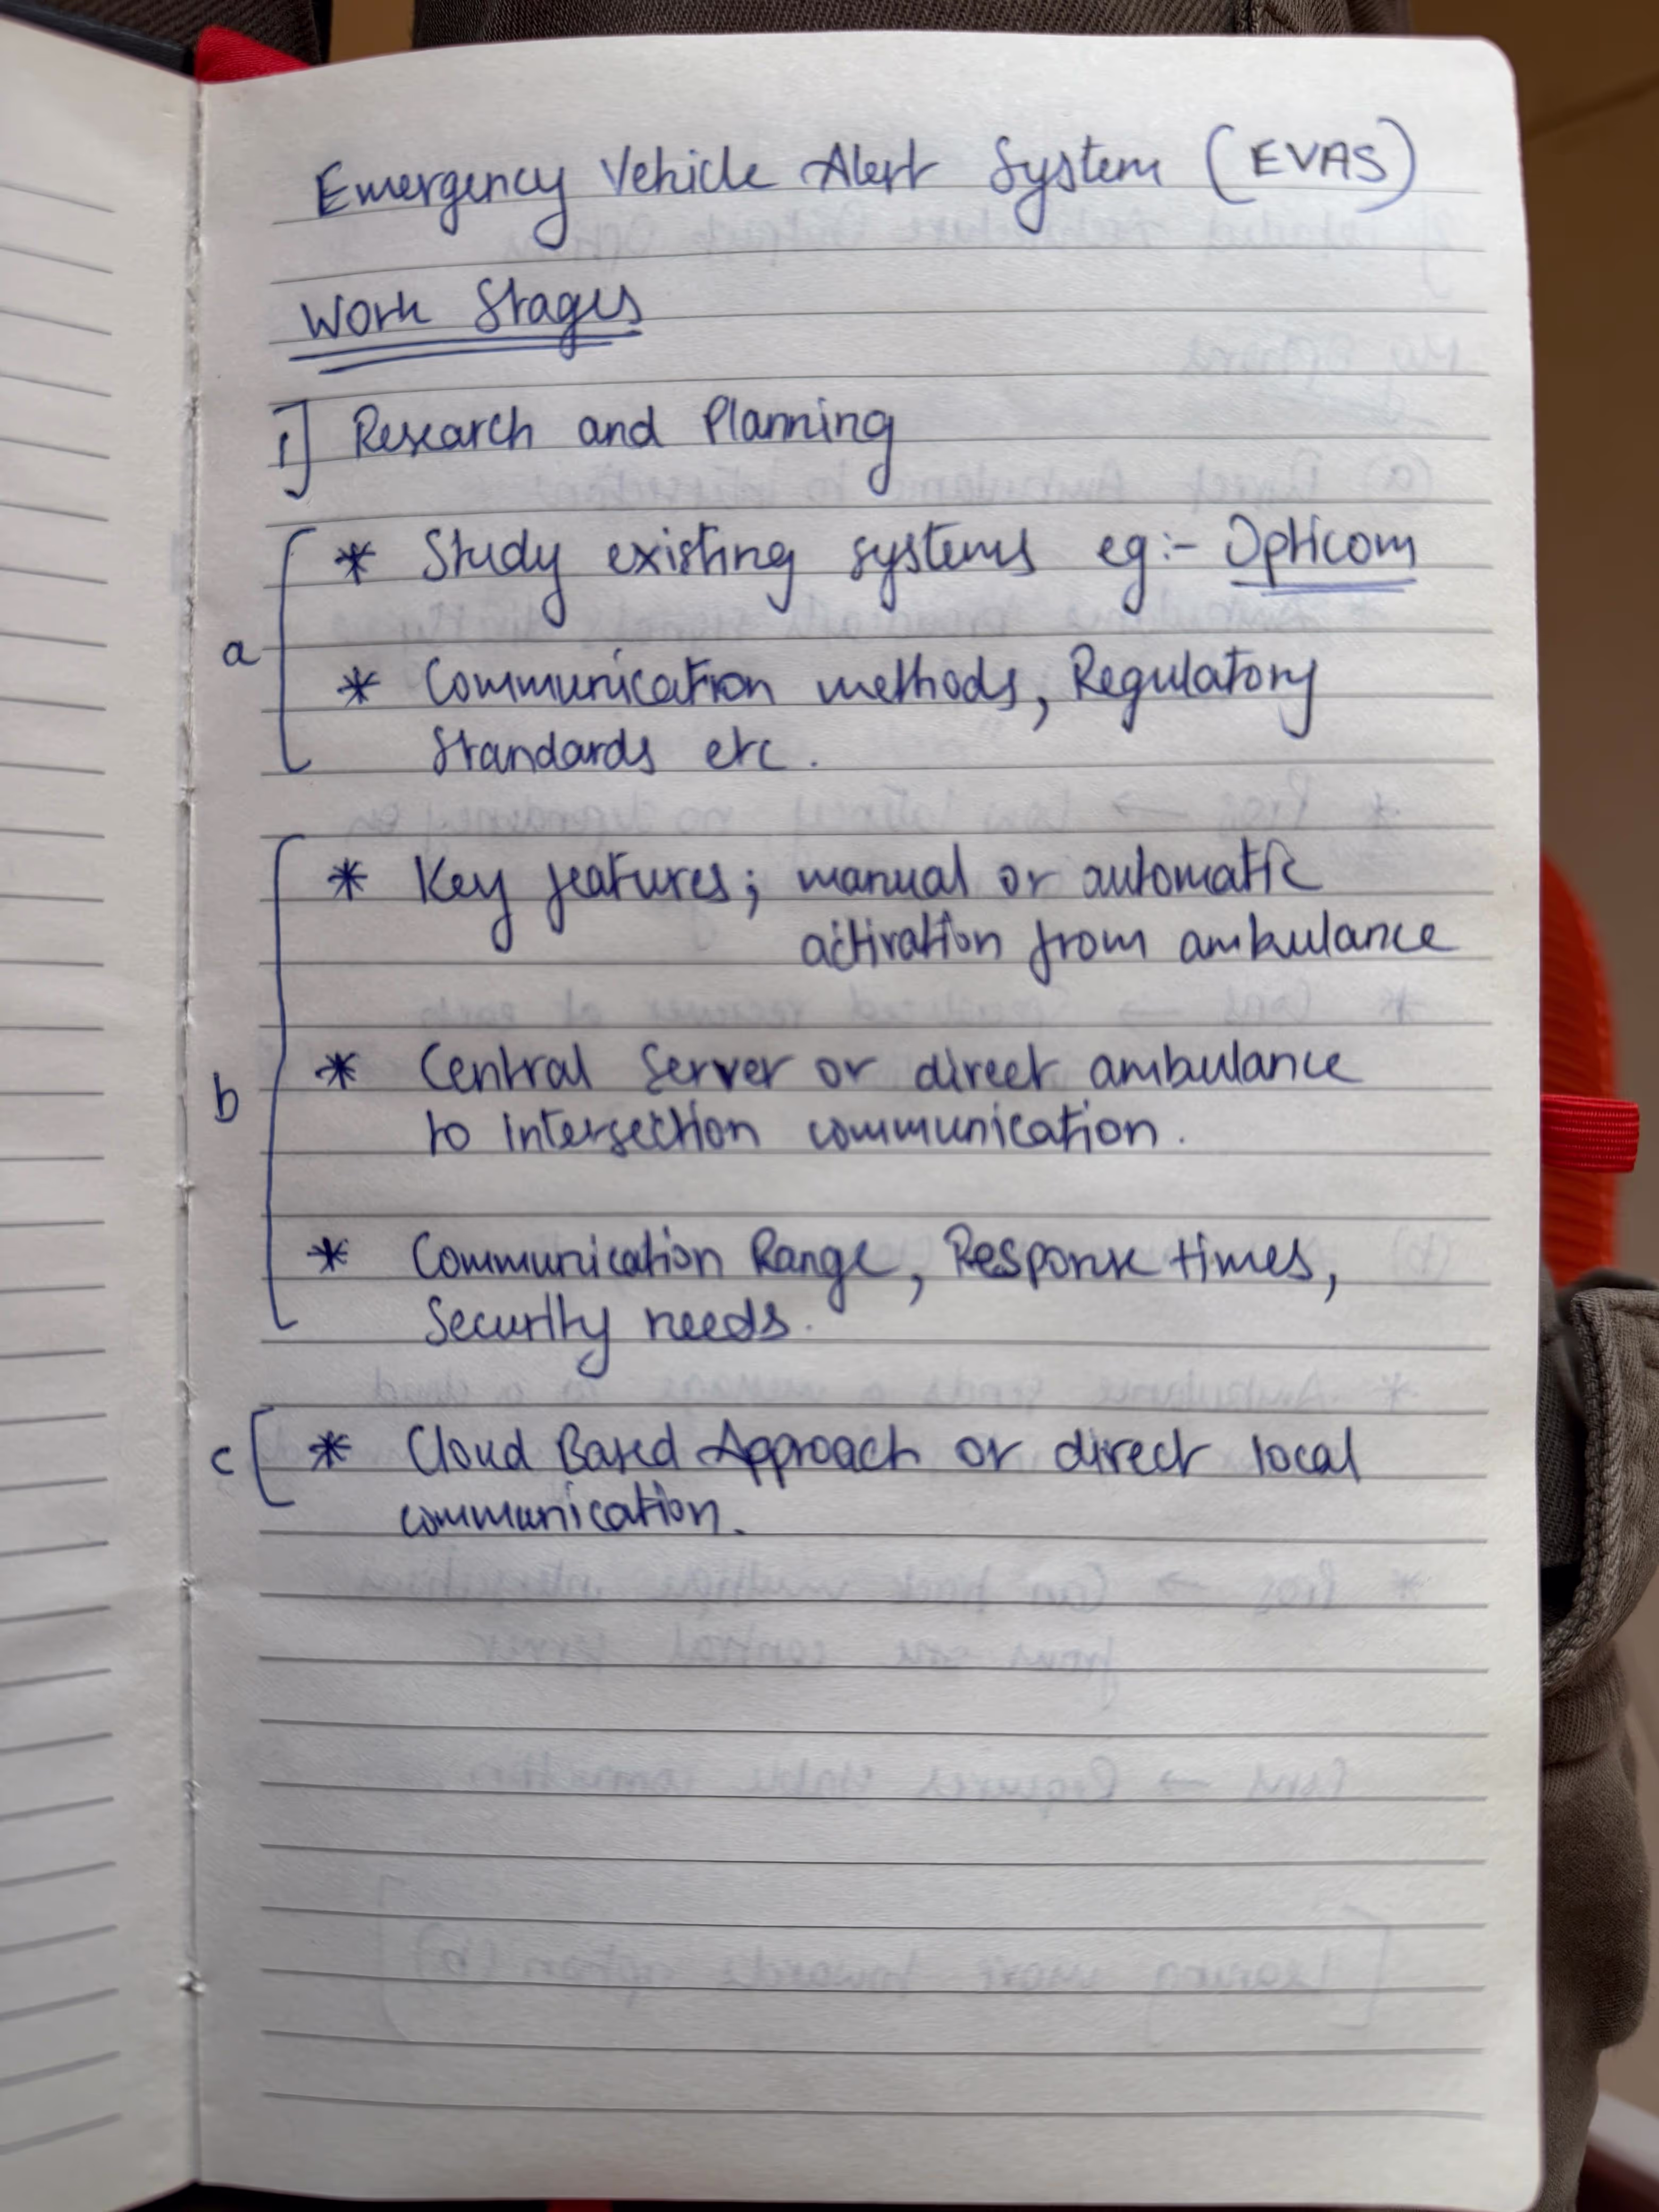 Emergency Vehicle Alert System (EVAS)
Work Stages
1] Research and Planning
* Study existing systems eg:- Opticom
a
* Communication methods, Regulatory
Standards etc.
* Key features; manual or automatic
activation from ambulance
* Central Server or direct ambulance
b
to intersection communication.
* Communication Range, Response times,
Security needs.
c * Cloud Based Approach or direct local
communication.